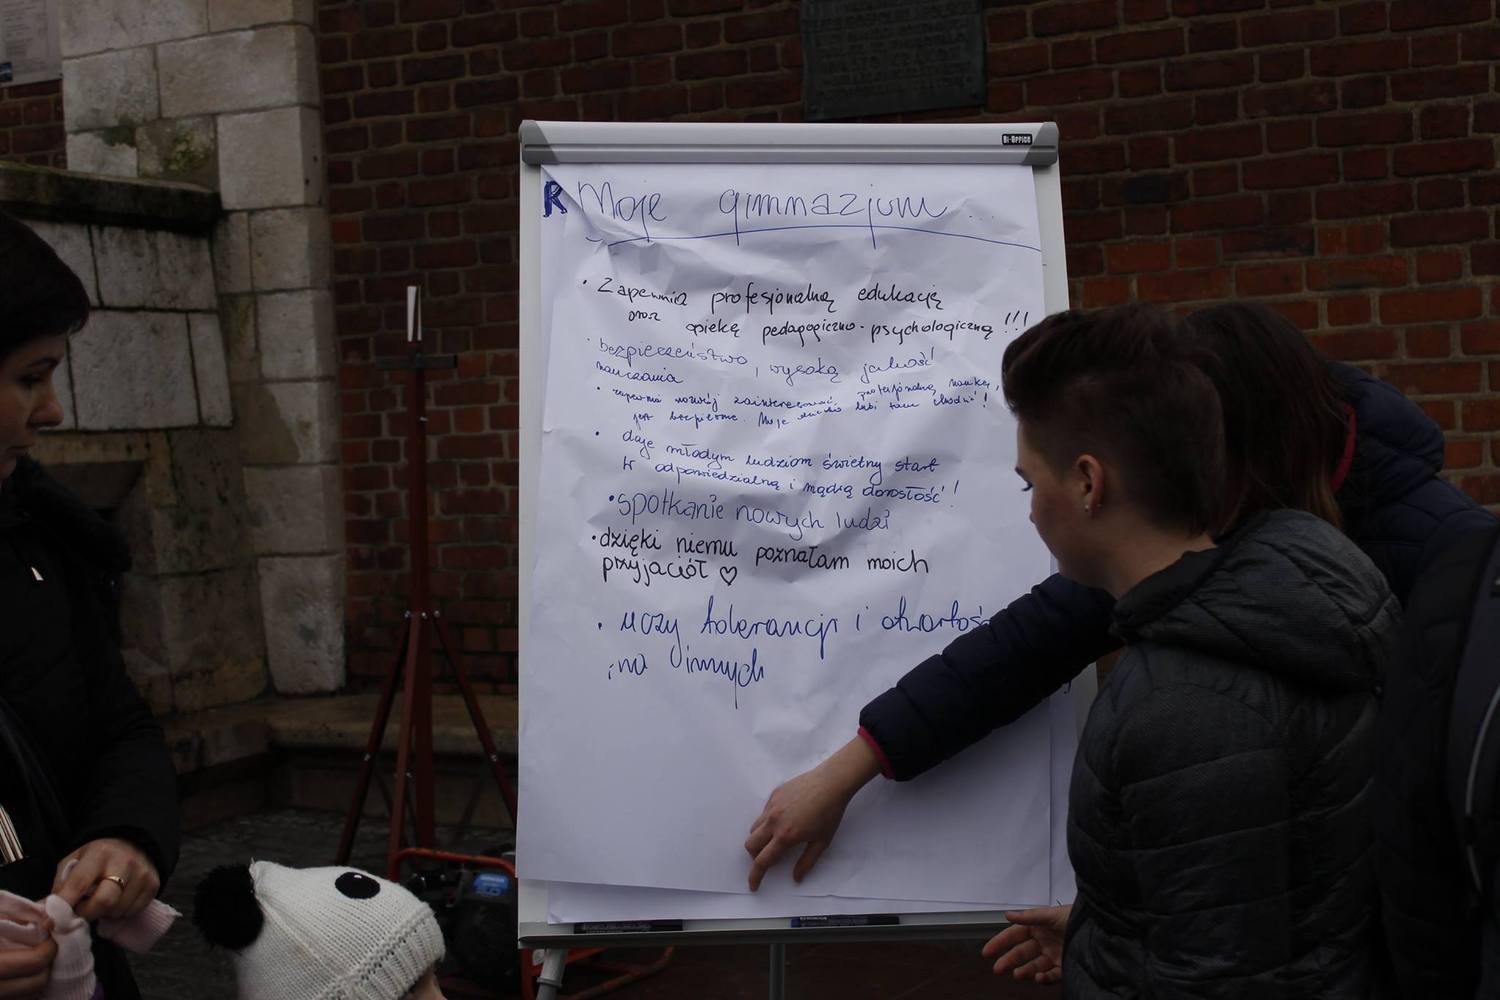 Bi-Office
R Moje gimnazjum ...
• Zapewnia profesjonalną edukację
oraz opiekę pedagogiczno-psychologiczną !!!
• bezpieczeństwo, wysoką jakość
nauczania
• zapewnia rozwój zainteresowań, profesjonalną naukę,
jest bezpieczne. Moje dziecko lubi tam chodzić!
• daje młodym ludziom świetny start
w odpowiedzialną i mądrą dorosłość!
• spotkanie nowych ludzi
• dzięki niemu poznałam moich
przyjaciół ♡
• uczy tolerancji i otwartość
na innych